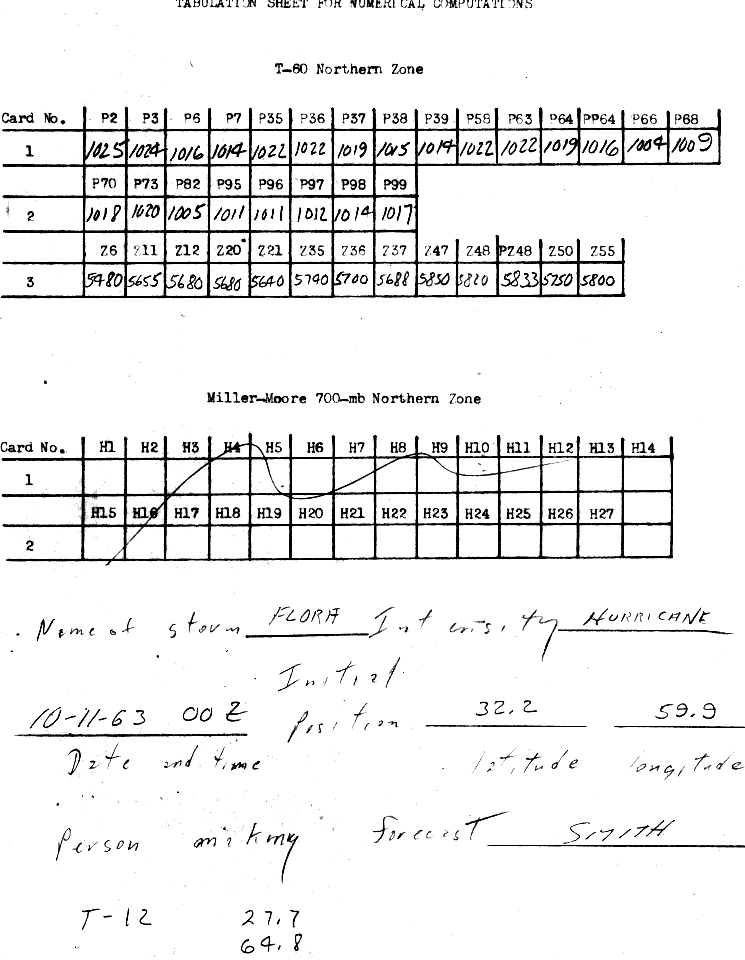 TABULATION SHEET FOR NUMERICAL COMPUTATIONS
T-60 Northern Zone
Card No. P2 P3 P6 P7 P35 P36 P37 P38 P39 P58 P63 P64 PP64 P66 P68
1 1025 1024 1016 1014 1022 1022 1019 1015 1014 1022 1022 1019 1016 1004 1009
P70 P73 P82 P95 P96 P97 P98 P99
2 1018 1020 1005 1011 1011 1012 1014 1017
Z6 Z11 Z12 Z20 Z21 Z35 Z36 Z37 Z47 Z48 PZ48 Z50 Z55
3 5480 5655 5680 5680 5640 5740 5700 5688 5850 5820 5833 5750 5800
Miller-Moore 700-mb Northern Zone
Card No. H1 H2 H3 H4 H5 H6 H7 H8 H9 H10 H11 H12 H13 H14
1
H15 H16 H17 H18 H19 H20 H21 H22 H23 H24 H25 H26 H27
2
Name of storm FLORA Intensity HURRICANE
Initial
10-11-63 00 Z position 32.2 59.9
Date and time latitude longitude
Person making forecast SMITH
T-12 27.7
64.8